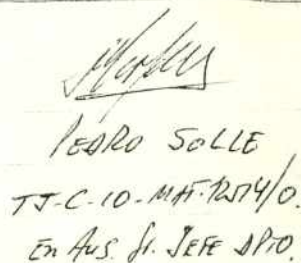 PEDRO SOLLE
TJ-C-10-MAT.
En Aus. Sr. JEFE DPTO.